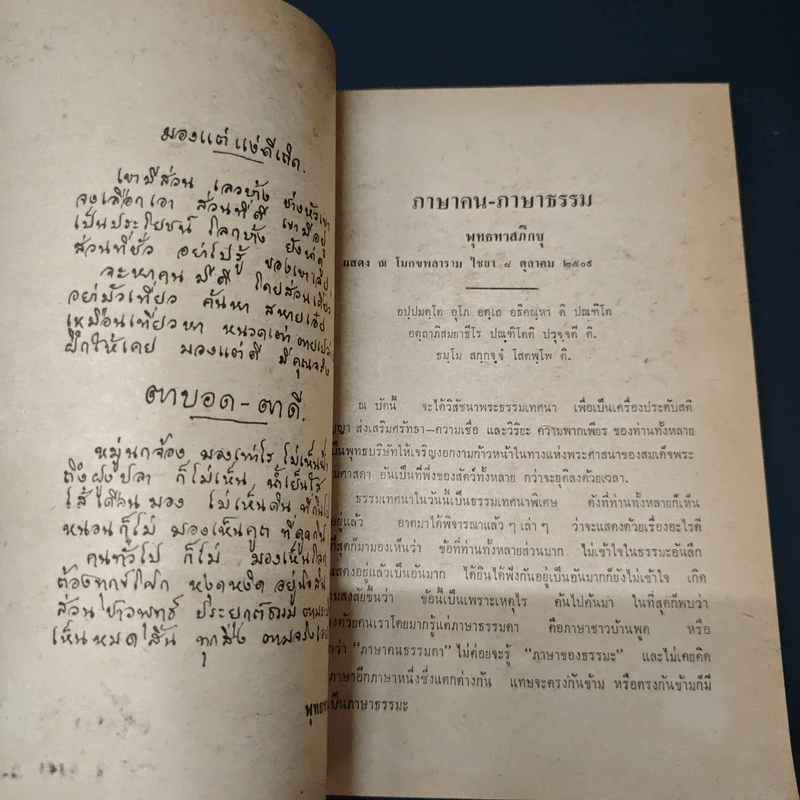 มองแต่แง่ดีเถิด.
เขามีส่วน เลวบ้าง ช่างหัวเขา
จงเลือกเอา ส่วนที่ดี เขามีอยู่
เป็นประโยชน์ โลกบ้าง ยังน่าดู
ส่วนที่ชั่ว อย่าไปรู้ ของเขาเลย
จะหาคน มีดี โดยส่วนเดียว
อย่ามัวเที่ยว ค้นหา สหายเอ๋ย
เหมือนเที่ยวหา หนวดเต่า ตายเปล่า
ฝึกให้เคย มองแต่ดี มีคุณจริง
ตาบอด-ตาดี.
หมู่นกจ้อง มองเท่าไร ไม่เห็นฟ้า
ถึงฝูงปลา ก็ไม่เห็น น้ำเย็นใส
ไส้เดือนมอง ไม่เห็นดิน ที่กินไป
หนอนก็ไม่ มองเห็นคูต ที่ดูดกิน
คนทั่วไป ก็ไม่ มองเห็นโลก
ต้องทุกข์โศก หงุดหงิด อยู่
ส่วนชาวพุทธ ประยุกต์ธรรม ตาม
เห็นหมดสิ้น ทุกสิ่ง ตามจริง
ภาษาคน-ภาษาธรรม
พุทธทาสภิกขุ
แสดง ณ โมกขพลาราม ไชยา ๘ ตุลาคม ๒๕๐๙
อปฺปมตฺโต อุโภ อตฺเถ อธิคณฺหาติ ปณฺฑิโต
อตฺถาภิสมยาธีโร ปณฺฑิโตติ ปวุจฺจติ ติ.
ธมฺโม สกฺกจฺจํ โสตพฺโพ ติ.
ณ บัดนี้ จะได้วิสัชนาพระธรรมเทศนา เพื่อเป็นเครื่องประดับสติ
ญญา ส่งเสริมศรัทธา–ความเชื่อ และวิริยะ ความพากเพียร ของท่านทั้งหลาย
เป็นพุทธบริษัทให้เจริญงอกงามก้าวหน้าในทางแห่งพระศาสนาของสมเด็จพระ
มศาสดา อันเป็นที่พึ่งของสัตว์ทั้งหลาย กว่าจะยุติลงด้วยเวลา.
ธรรมเทศนาในวันนี้เป็นธรรมเทศนาพิเศษ ดังที่ท่านทั้งหลายก็เห็น
อยู่แล้ว อาตมาได้พิจารณาแล้ว ๆ เล่า ๆ ว่าจะแสดงด้วยเรื่องอะไรดี
ที่สุดก็มามองเห็นว่า ข้อที่ท่านทั้งหลายส่วนมาก ไม่เข้าใจในธรรมะอันลึก
แสดงอยู่แล้วเป็นอันมาก ได้ยินได้ฟังกันอยู่เป็นอันมากก็ยังไม่เข้าใจ เกิด
มสงสัยขึ้นว่า ข้อนี้เป็นเพราะเหตุไร ค้นไปค้นมา ในที่สุดก็พบว่า
งด้วยคนเราโดยมากรู้แต่ภาษาธรรมดา คือภาษาชาวบ้านพูด หรือ
กว่า “ภาษาคนธรรมดา” ไม่ค่อยจะรู้ “ภาษาของธรรมะ” และไม่เคยคิด
ภาษาอีกภาษาหนึ่งซึ่งแตกต่างกัน แทบจะตรงกันข้าม หรือตรงกันข้ามก็มี
เป็นภาษาธรรมะ